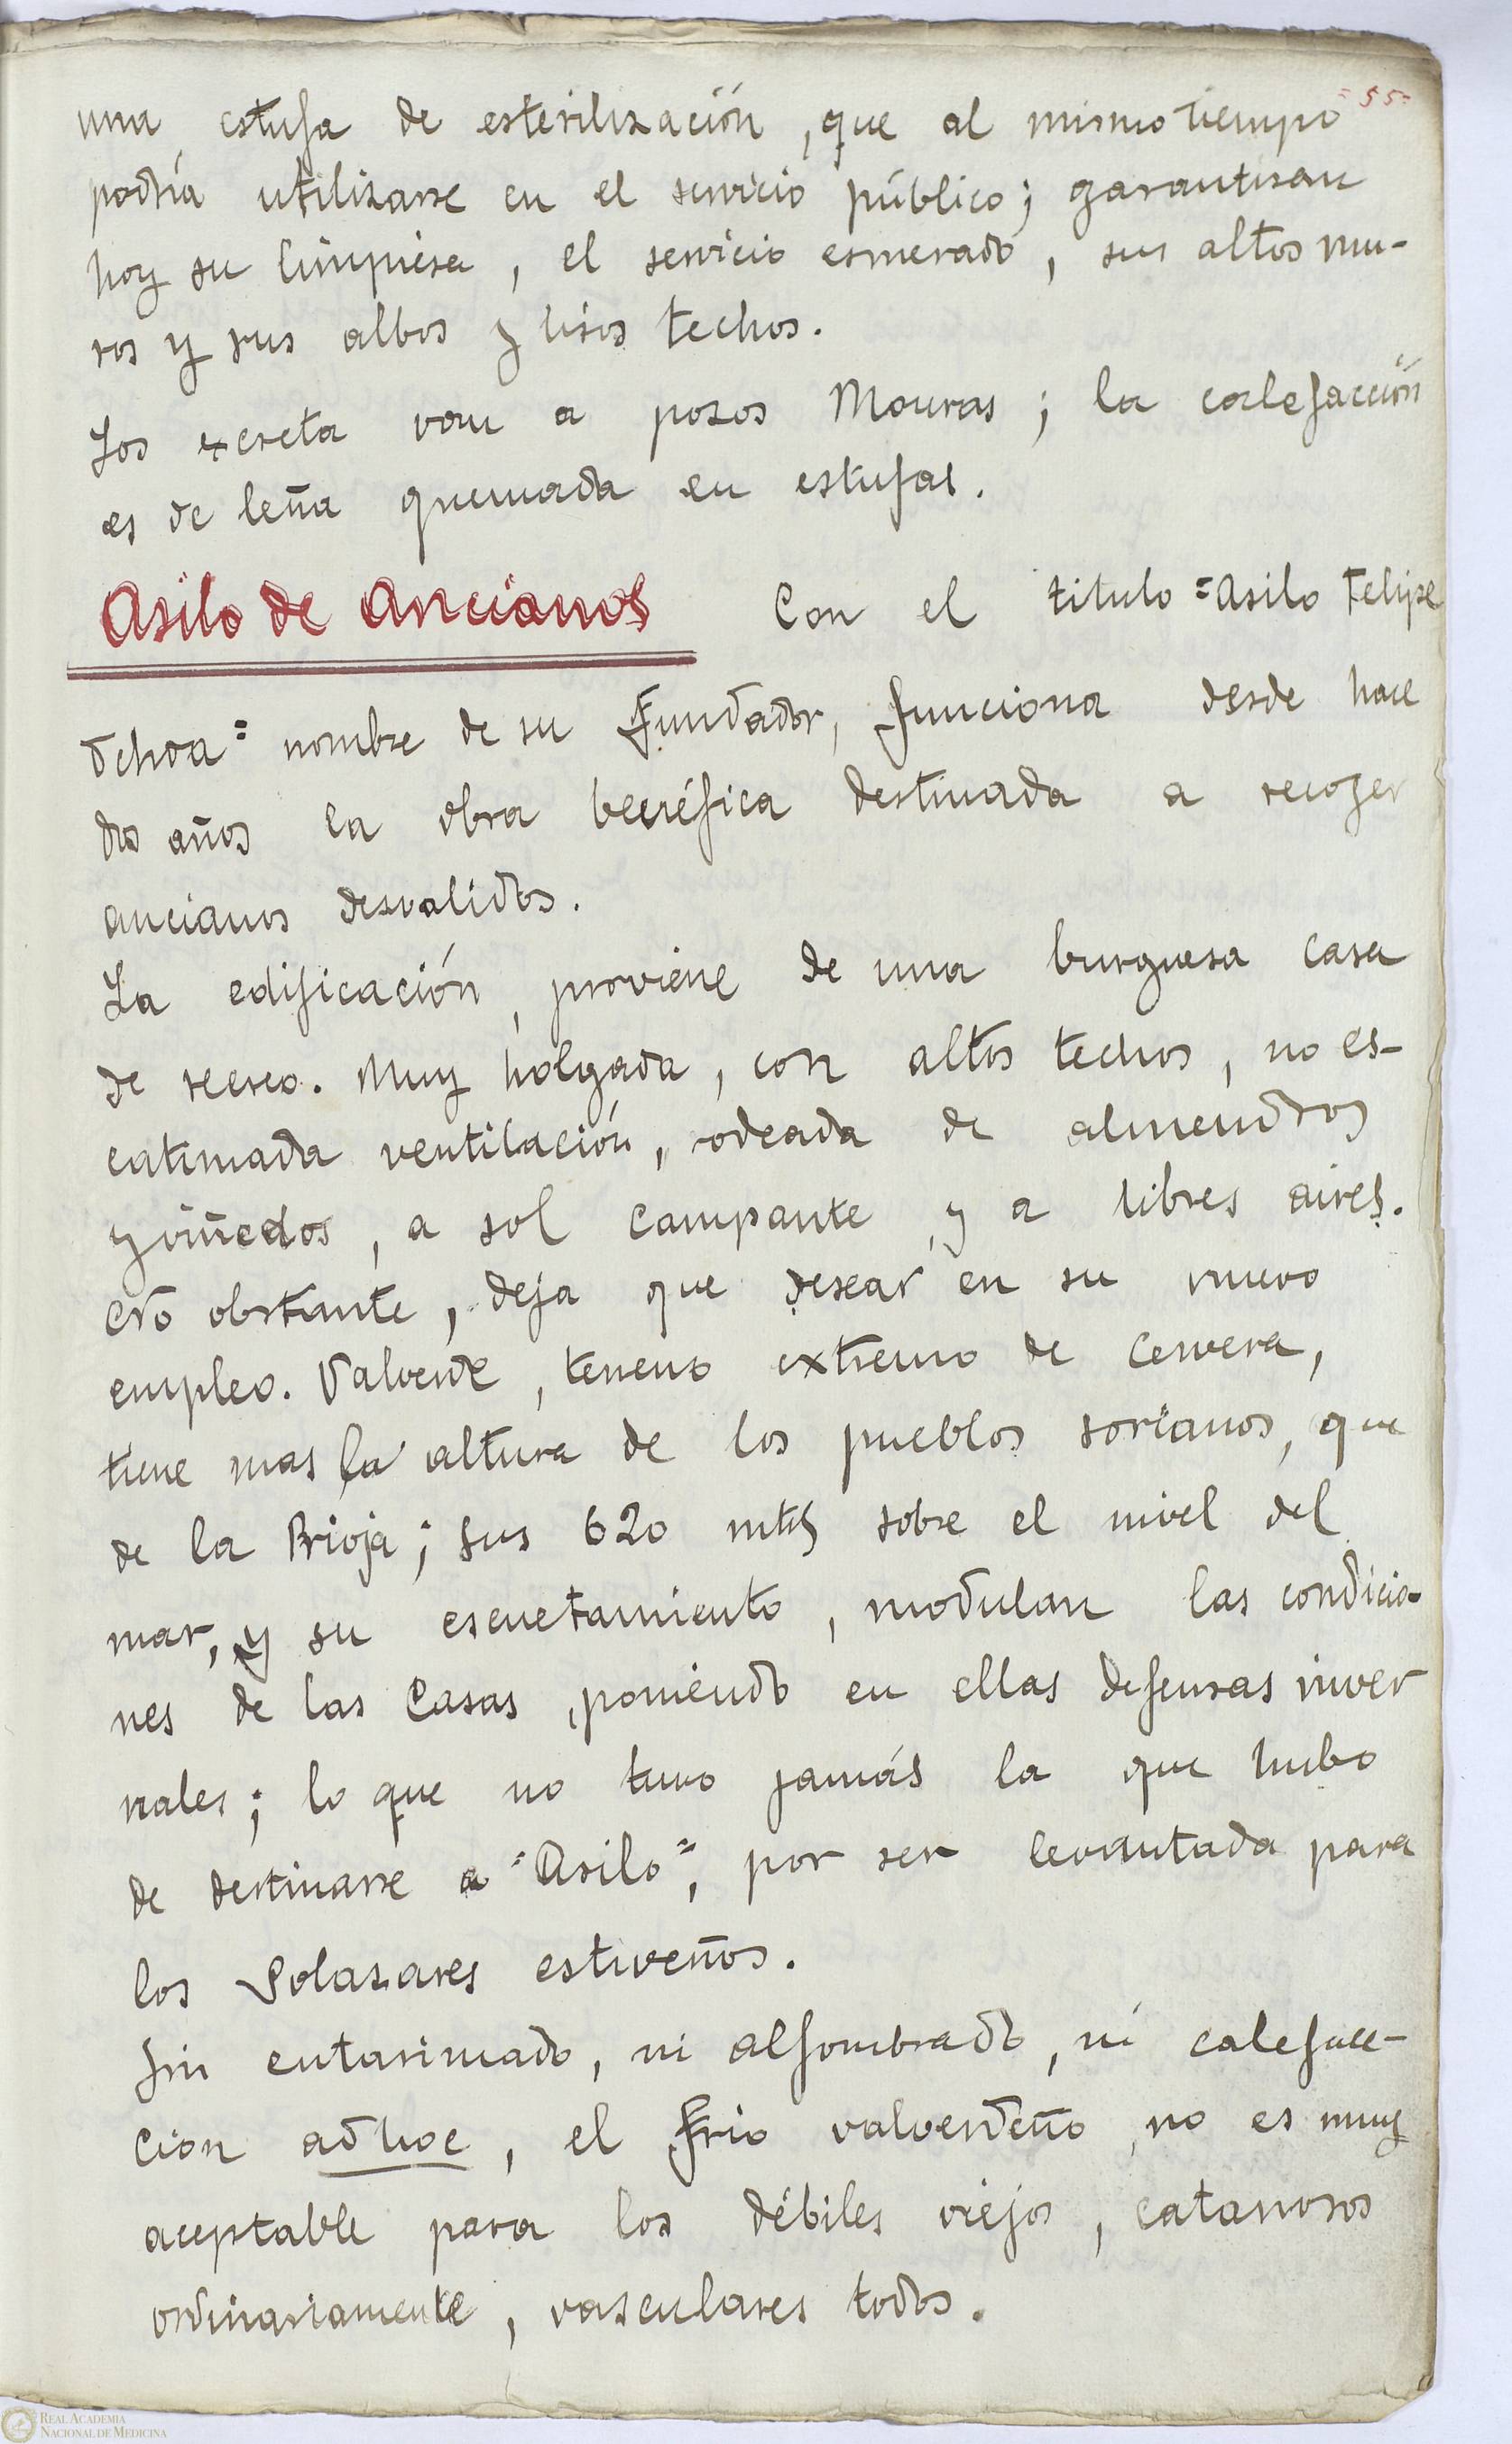 =55=
una estufa de esterilización, que al mismo tiempo
podría utilizarse en el servicio público; garantizan
hoy su limpieza, el servicio esmerado, sus altos mu-
ros y sus albos y lisos techos.
Los excreta van a pozos Mouras; la calefacción
es de leña quemada en estufas.
Asilo de Ancianos Con el titulo "Asilo Felipe
Ochoa" nombre de su Fundador, funciona desde hace
dos años la obra benéfica destinada a recoger
ancianos desvalidos.
La edificación, proviene de una burguesa casa
de recreo. Muy holgada, con altos techos, no es-
catimada ventilación, rodeada de almendros
y viñedos, a sol campante, y a libres aires.
No obstante, deja que desear en su nuevo
empleo. Valverde, terreno extremo de Cervera,
tiene mas la altura de los pueblos sorianos, que
de la Rioja; sus 620 mts sobre el nivel del
mar, y su escuetamiento, modulan las condicio-
nes de las Casas, poniendo en ellas defensas inver
nales; lo que no tuvo jamás la que hubo
de destinarse a "Asilo", por ser levantada para
los Solazares estiveños.
Sin entarimado, ni alfombrado, ni calefac-
cion ad hoc, el frio valverdeño, no es muy
aceptable para los débiles viejos, catarrosos
ordinariamente, vasculares todos.
REAL ACADEMIA
NACIONAL DE MEDICINA